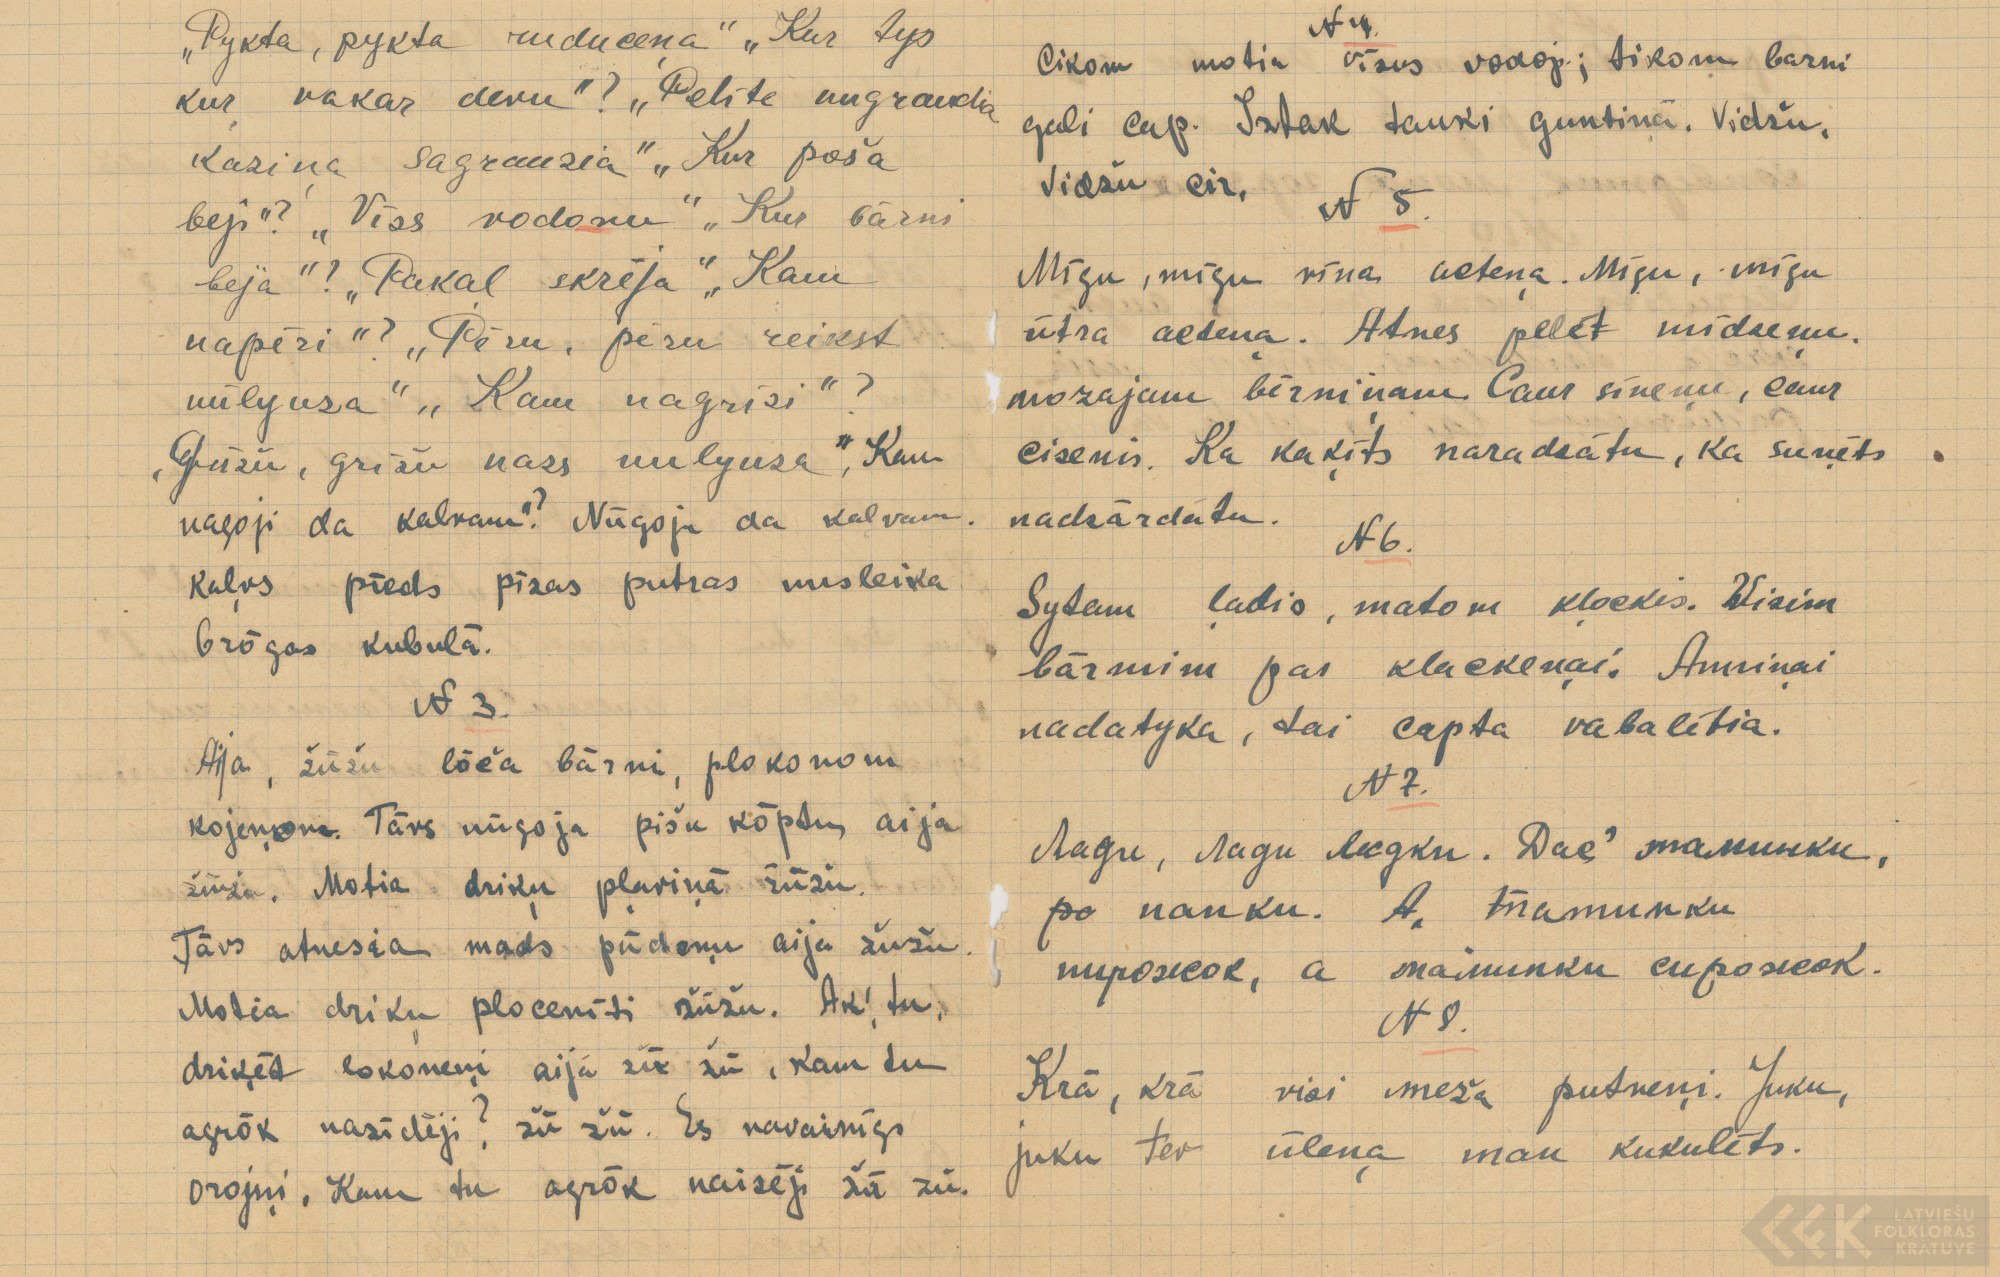 „Pykta, pykta ruduceņa“ „Kur tys
kur vakar devu“? „Pelīte nugraudia
kasiņa sagrausia“ „Kur poša
beji“? „Viss vodonu“ „Kur bārni
beja“? „Pakaļ skrēja“ „Kam
napēri“? „Pēru, pēru reikst
nūlyuza“ „Kam nagrīzi“?
„Grīžu, grīžu nazs nulyuza“, Kam
nagoji da kalvam“? Nūgoju da kalvam.
Kaļvs pīeds pīzas putras nusleika
brōgas kubulā.
N 3.
Aija, žūžu lōča bārni, plokonom
kojeņom. Tārs nūgoja pišu kōptu, aija
žūžu. Motia driķu pļaviņā žūžu.
Tārs atnesia mads pūdeņu aija žužu.
Motia driķu plocenīti žūžu. Ak, tu,
driķēt lokoneņi aijā žū žū, kam tu
agrōk nazīdēji? žū žū. Es navainīgs
orojņi, Kam tu agrōk naisēji žū žū.
N 4.
Cikom motia vīsus vodoj; tikom barni
guli cap. Iztak tauki guntiņā. Vidžu,
Vidžu cir.
N 5.
Mīgu, mīgu vīna acteņa. Mīgu, mīgu
ūtra acteņa. Atnes pelīt mīdzeņu.
mozajam bērniņam. Caur sīneņu, caur
cisenis. Ka kaķīts naradzātu, ka suņēts
nadzārdātu.
N 6.
Sytam ļadis, matom kļockis. Visim
bārmim pas klackeņai. Anniņai
nadatyka, tai capta vabalētia.
N 7.
Лади, лади ладки. Дас' маминки,
по папки. А, мамипки
пирожок, а маминки сирожок.
N 8.
Krā, krā visi meža putneņi. Juku,
juku tev ūleņa man kukulēts.
LATVIEŠU
FOLKLORAS
KRĀTUVE